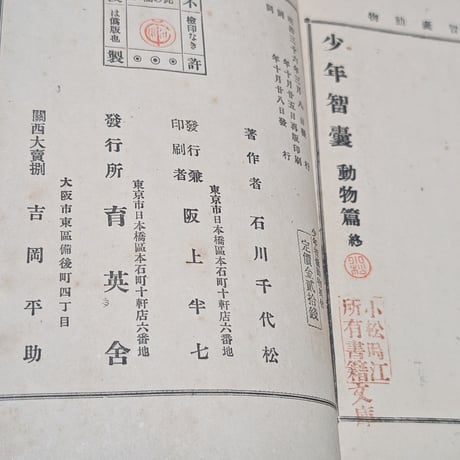 少年智囊 動物篇 終
小松周江
所有書籍文庫
定價金貳拾錢
年十月廿五日再版印刷
年十月廿八日發行
著作者 石川千代松
東京市日本橋區本石町十軒店六番地
發行兼印刷者 阪上半七
東京市日本橋區本石町十軒店六番地
發行所 育英舍
大阪市東區備後町四丁目
關西大賣捌 吉岡平助
不許
製
檢印なき
は僞版也